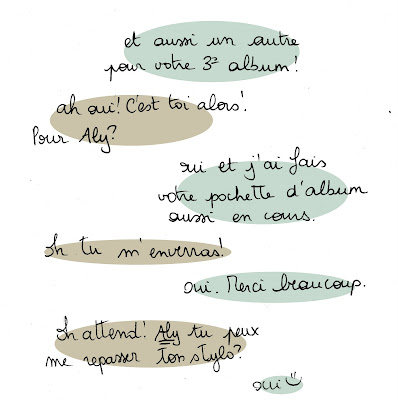 et aussi un autre
pour votre 3e album!
ah oui! C'est toi alors!
Pour Aly?
oui et j'ai fais
votre pochette d'album
aussi en cours.
Ih tu m'enverras!
oui. Merci beaucoup.
Ih attend! Aly tu peux
me repasser ton stylo?
oui